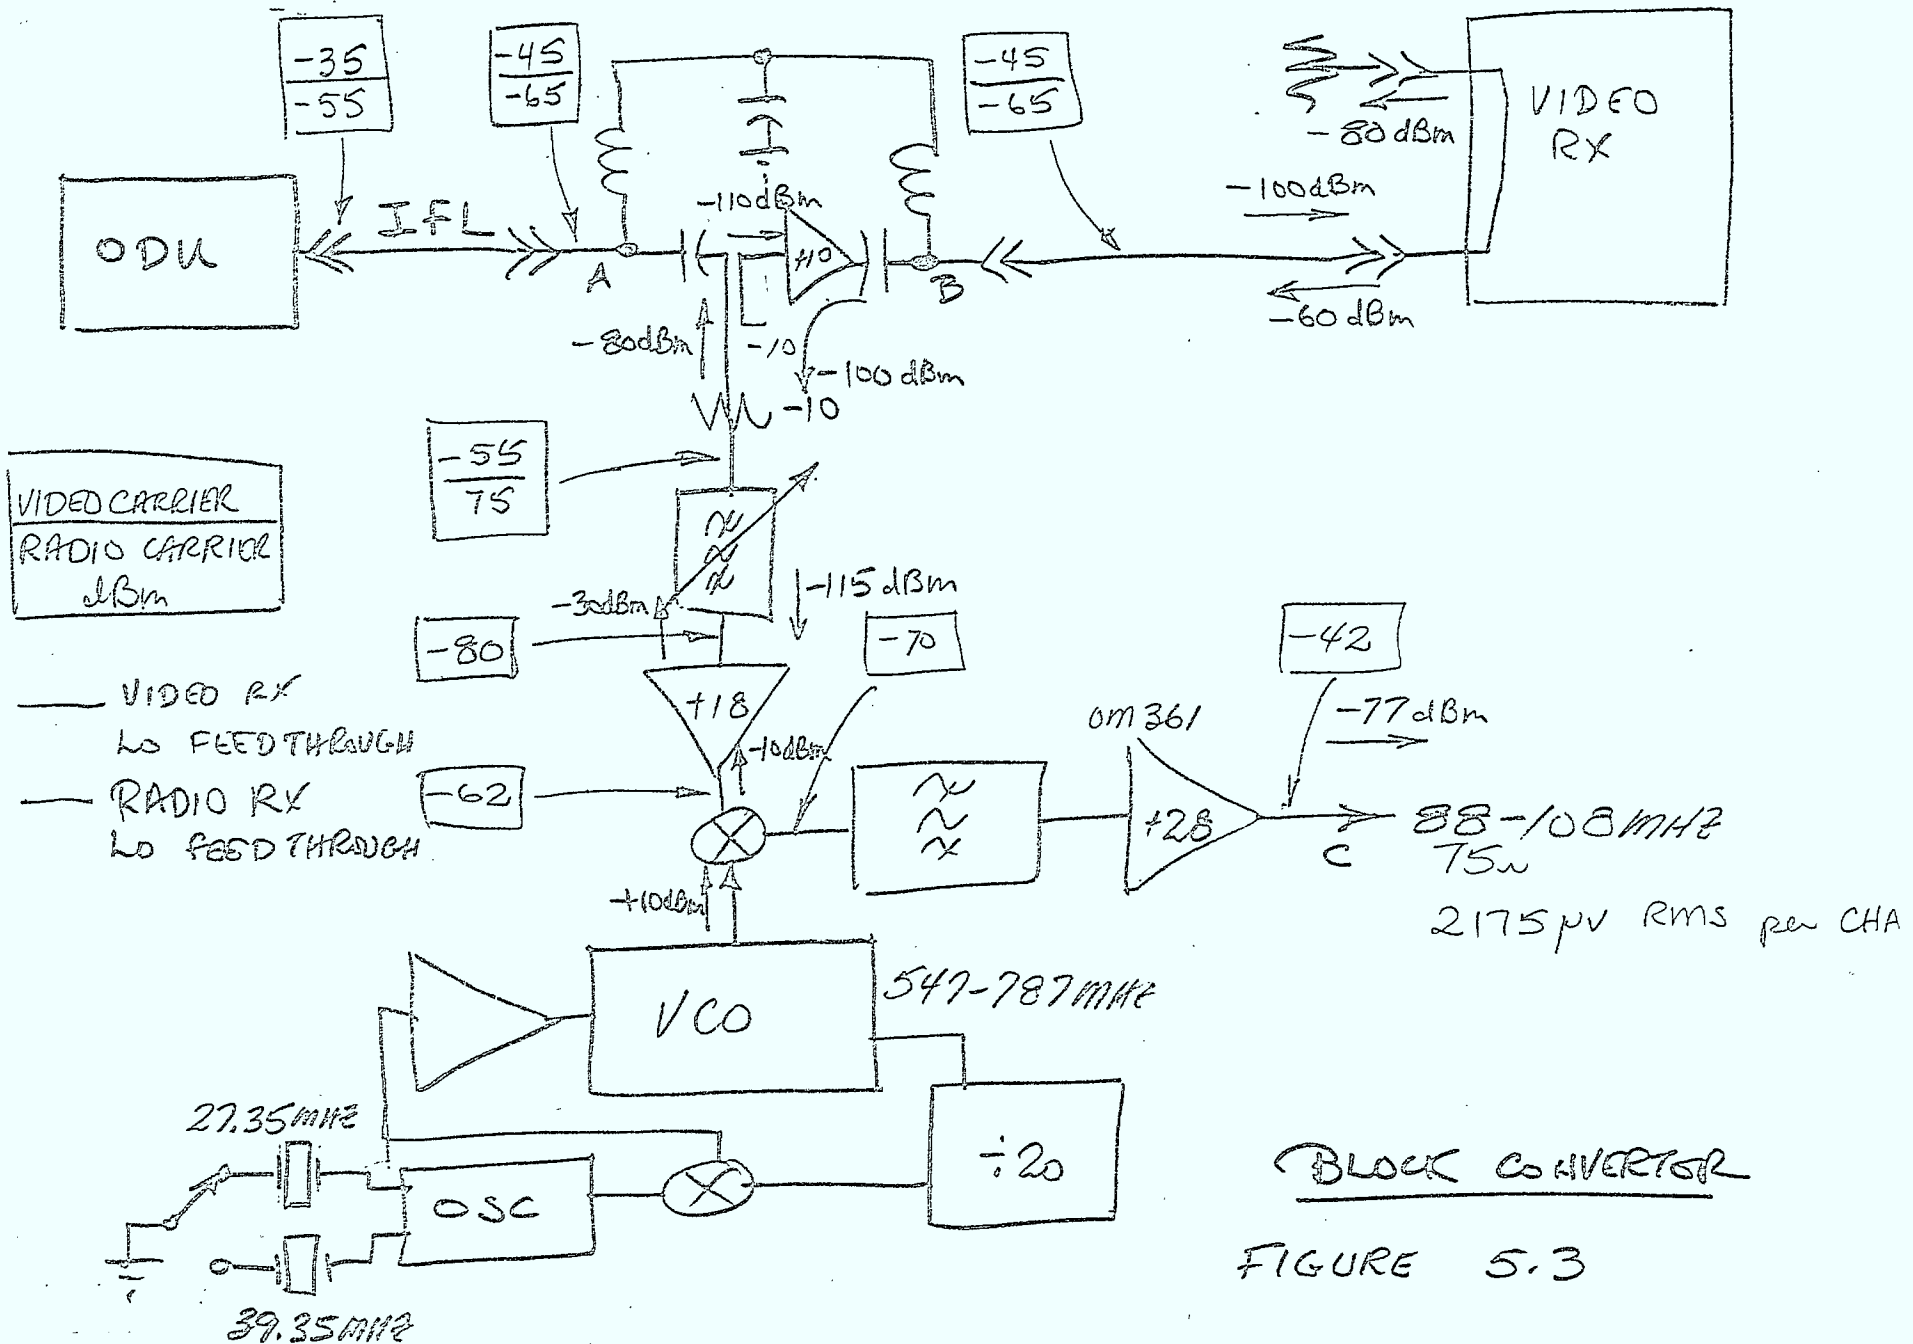 -35
-55
-45
-65
-45
-65
-80 dBm
VIDEO
RX
-100 dBm
-60 dBm
ODU
IFL
A
-110 dBm
+10
B
-80 dBm
-10
-100 dBm
-10
-55
75
VIDEO CARRIER
RADIO CARRIER
dBm
-30 dBm
-115 dBm
-80
-70
-42
VIDEO RX
LO FEEDTHROUGH
RADIO RX
LO FEEDTHROUGH
+18
-10 dBm
-62
OM361
+28
-77 dBm
C
88-108 MHZ
75Ω
2175 µV RMS per CHA
+10 dBm
VCO
547-787 MHZ
27.35 MHZ
OSC
÷20
39.35 MHZ
BLOCK CONVERTOR
FIGURE 5.3